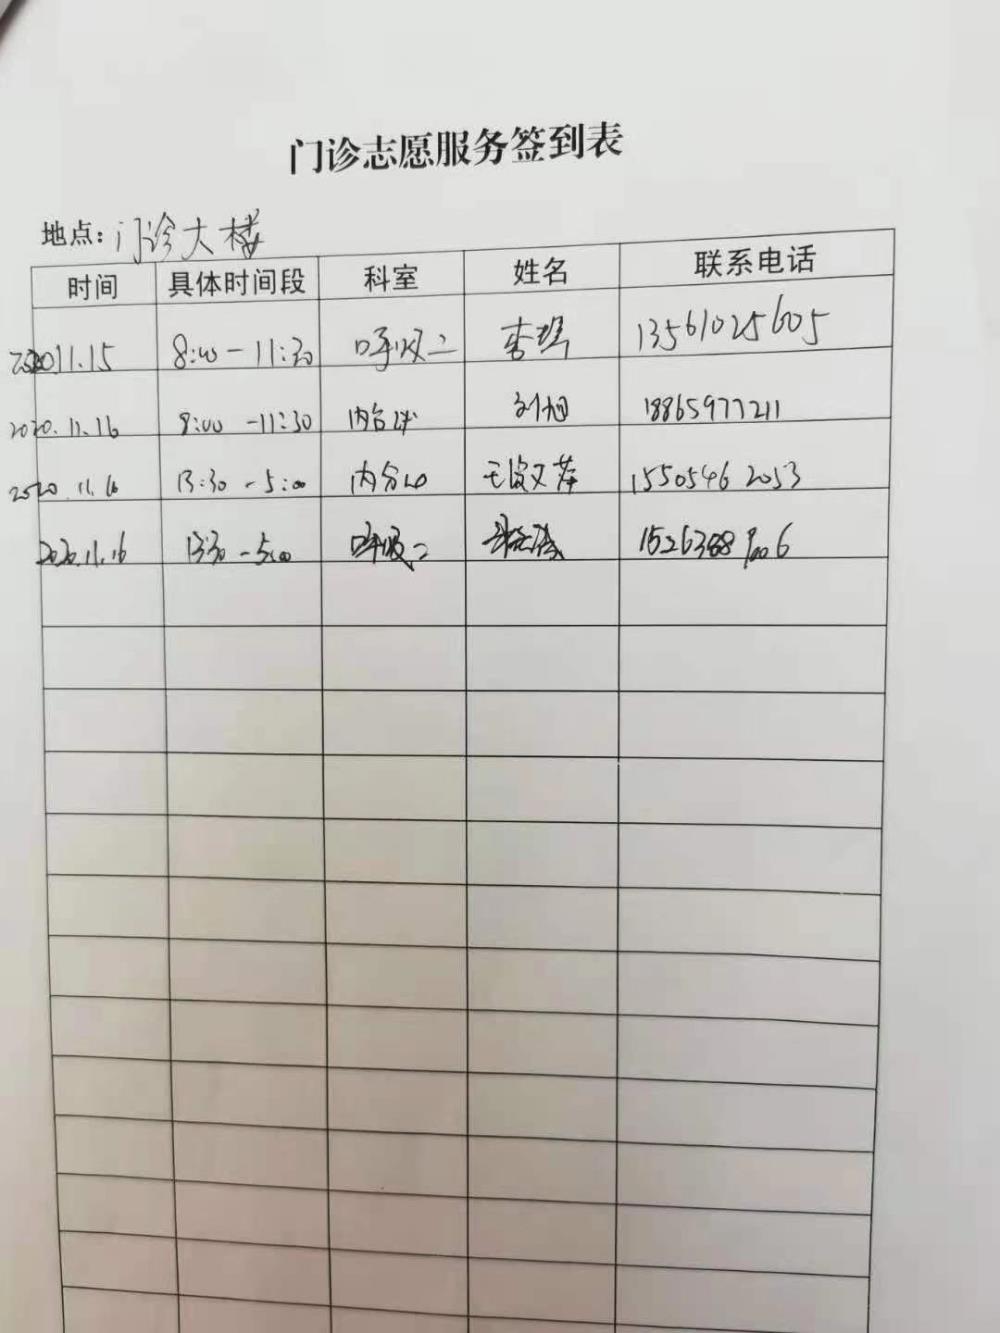 门诊志愿服务签到表
地点：门诊大楼
时间 具体时间段 科室 姓名 联系电话
2020.11.15 8:00-11:30 呼吸二 李 13561025605
2020.11.16 8:00-11:30 内 刘旭 18865977211
2020.11.16 13:30-5:00 内分 王 1550546 2053
2020.11.16 13:30-5:00 呼吸二